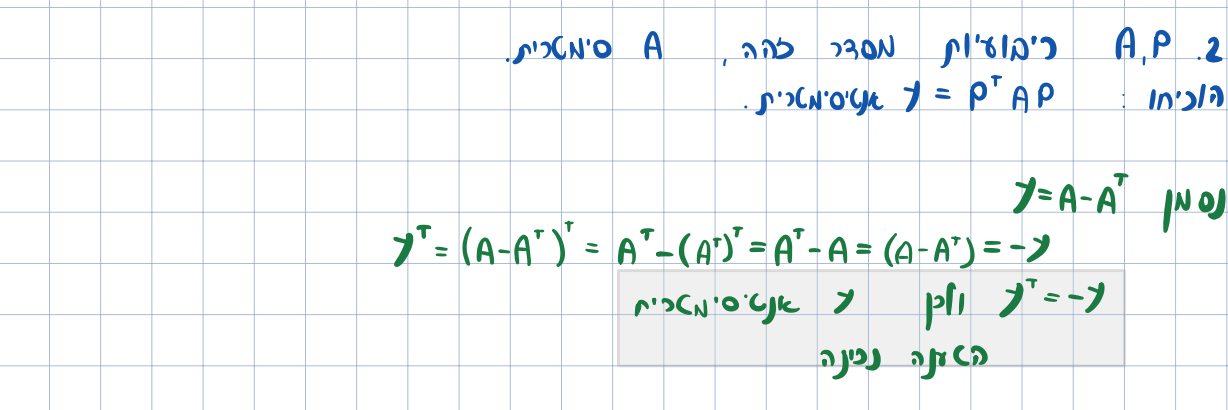 2. A,P ריבועיות מסדר זהה, A סימטרית.
הוכיחו: y = P^T A P אנטיסימטרית.
נסמן y = A - A^T
y^T = (A - A^T)^T = A^T - (A^T)^T = A^T - A = (A - A^T) = -y
y^T = -y ולכן y אנטיסימטרית
הטענה נכונה